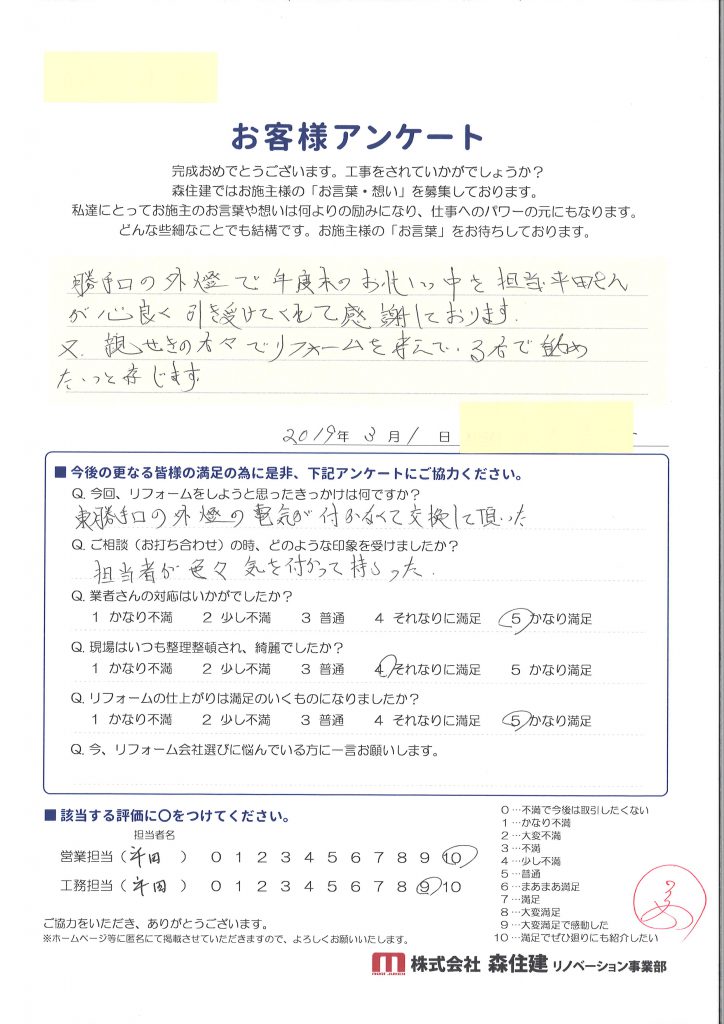 お客様アンケート
完成おめでとうございます。工事をされていかがでしょうか？
森住建ではお施主様の「お言葉・想い」を募集しております。
私達にとってお施主のお言葉や想いは何よりの励みになり、仕事へのパワーの元にもなります。
どんな些細なことでも結構です。お施主様の「お言葉」をお待ちしております。
勝手口の外燈で年度末のお忙しい中を担当平田さん
が心良く引き受けてくれて感謝しております。
又、親せきの方々でリフォームを考えている方で勧め
たいと存じます
2019年 3月 1日
■ 今後の更なる皆様の満足の為に是非、下記アンケートにご協力ください。
Q. 今回、リフォームをしようと思ったきっかけは何ですか？
東勝手口の外燈の電気が付かなくて交換して頂いた
Q. ご相談（お打ち合わせ）の時、どのような印象を受けましたか？
担当者が色々気を付かって持らった.
Q. 業者さんの対応はいかがでしたか？
1 かなり不満 2 少し不満 3 普通 4 それなりに満足 5 かなり満足
Q. 現場はいつも整理整頓され、綺麗でしたか？
1 かなり不満 2 少し不満 3 普通 4 それなりに満足 5 かなり満足
Q. リフォームの仕上がりは満足のいくものになりましたか？
1 かなり不満 2 少し不満 3 普通 4 それなりに満足 5 かなり満足
Q. 今、リフォーム会社選びに悩んでいる方に一言お願いします。
■ 該当する評価に〇をつけてください。
担当者名
営業担当（平田） 0 1 2 3 4 5 6 7 8 9 10
工務担当（平田） 0 1 2 3 4 5 6 7 8 9 10
0 …不満で今後は取引したくない
1 …かなり不満
2 …大変不満
3 …不満
4 …少し不満
5 …普通
6 …まあまあ満足
7 …満足
8 …大変満足
9 …大変満足で感動した
10 …満足でぜひ廻りにも紹介したい
ご協力をいただき、ありがとうございます。
※ホームページ等に匿名にて掲載させていただきますので、よろしくお願いいたします。
株式会社 森住建 リノベーション事業部